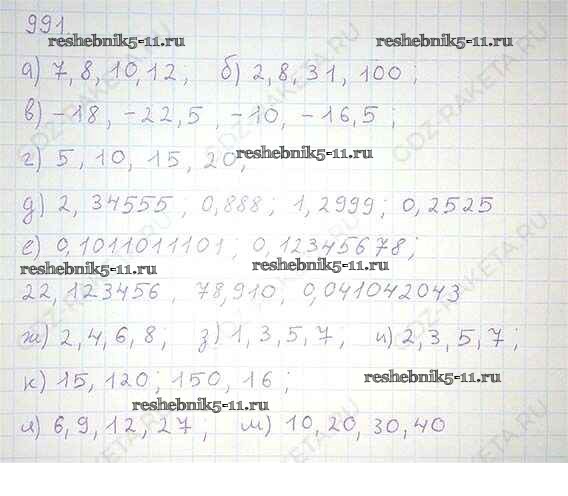 991
reshebnik5-11.ru reshebnik5-11.ru
а) 7, 8, 10, 12; б) 2, 8, 31, 100;
в) -18, -22,5, -10, -16,5;
г) 5, 10, 15, 20; reshebnik5-11.ru
д) 2, 34555; 0,888; 1,2999; 0,2525
е) 0,1011011101; 0,12345678;
reshebnik5-11.ru reshebnik5-11.ru
22,123456, 78,910, 0,041042043
ж) 2, 4, 6, 8; з) 1, 3, 5, 7; и) 2, 3, 5, 7;
к) 15, 120; 150, 16; reshebnik5-11.ru
reshebnik5-11.ru
л) 6, 9, 12, 27; м) 10, 20, 30, 40
GDZ-RAKETA.RU